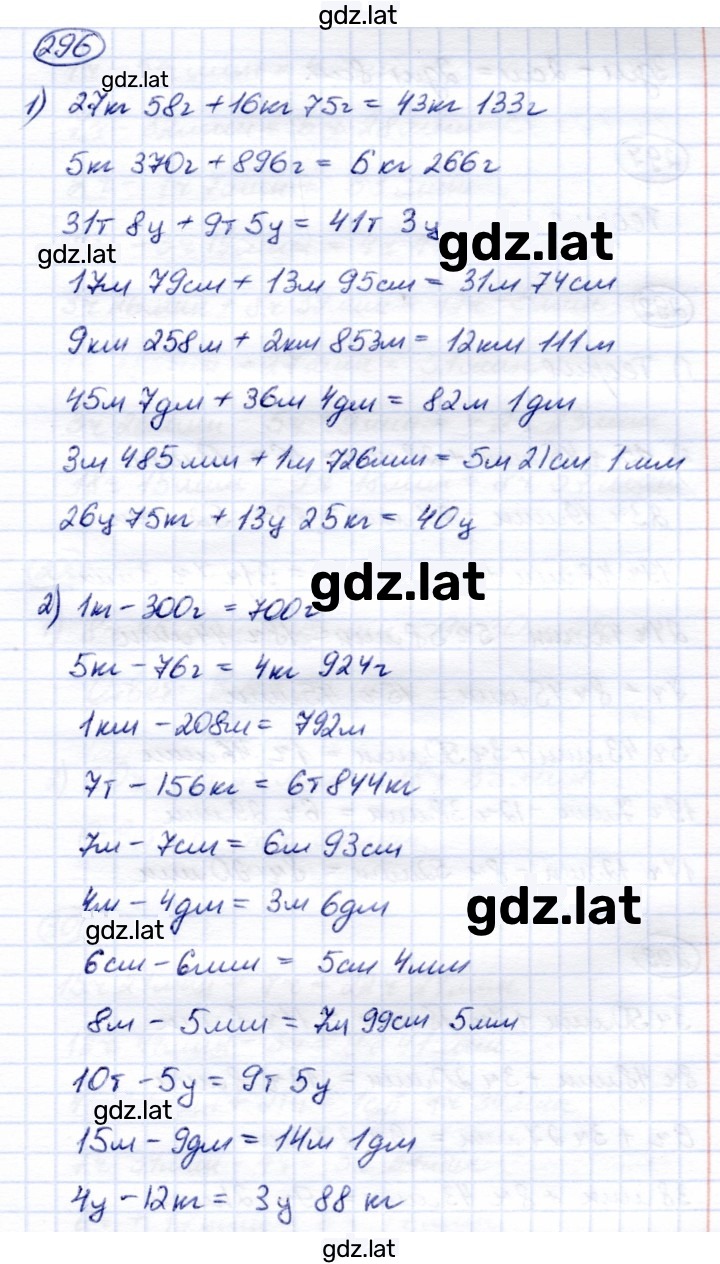 gdz.lat
296
gdz.lat
1) 27кг 58г + 16кг 75г = 43кг 133г
5кг 370г + 896г = 6кг 266г
31т 8ц + 9т 5ц = 41т 3ц
gdz.lat
gdz.lat
17м 79см + 13м 95см = 31м 74см
9км 258м + 2км 853м = 12км 111м
45м 7дм + 36м 4дм = 82м 1дм
3м 485мм + 1м 726мм = 5м 21см 1мм
26ц 75кг + 13ц 25кг = 40ц
gdz.lat
2) 1кг - 300г = 700г
5кг - 76г = 4кг 924г
1км - 208м = 792м
7т - 156кг = 6т 844кг
7м - 7см = 6м 93см
4м - 4дм = 3м 6дм
gdz.lat
gdz.lat
6см - 6мм = 5см 4мм
8м - 5мм = 7м 99см 5мм
10т - 5ц = 9т 5ц
gdz.lat
15м - 9дм = 14м 1дм
4ц - 12кг = 3ц 88кг
gdz.lat